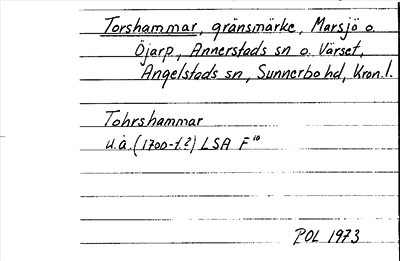 Torshammar, gränsmärke, Marsjö o.
Öjarp, Annerstads sn o. Värset,
Angelstads sn, Sunnerbo hd, Kron. l.
Tohrshammar
u.å. (1700-t.?) LSA F¹⁰
POL 1973